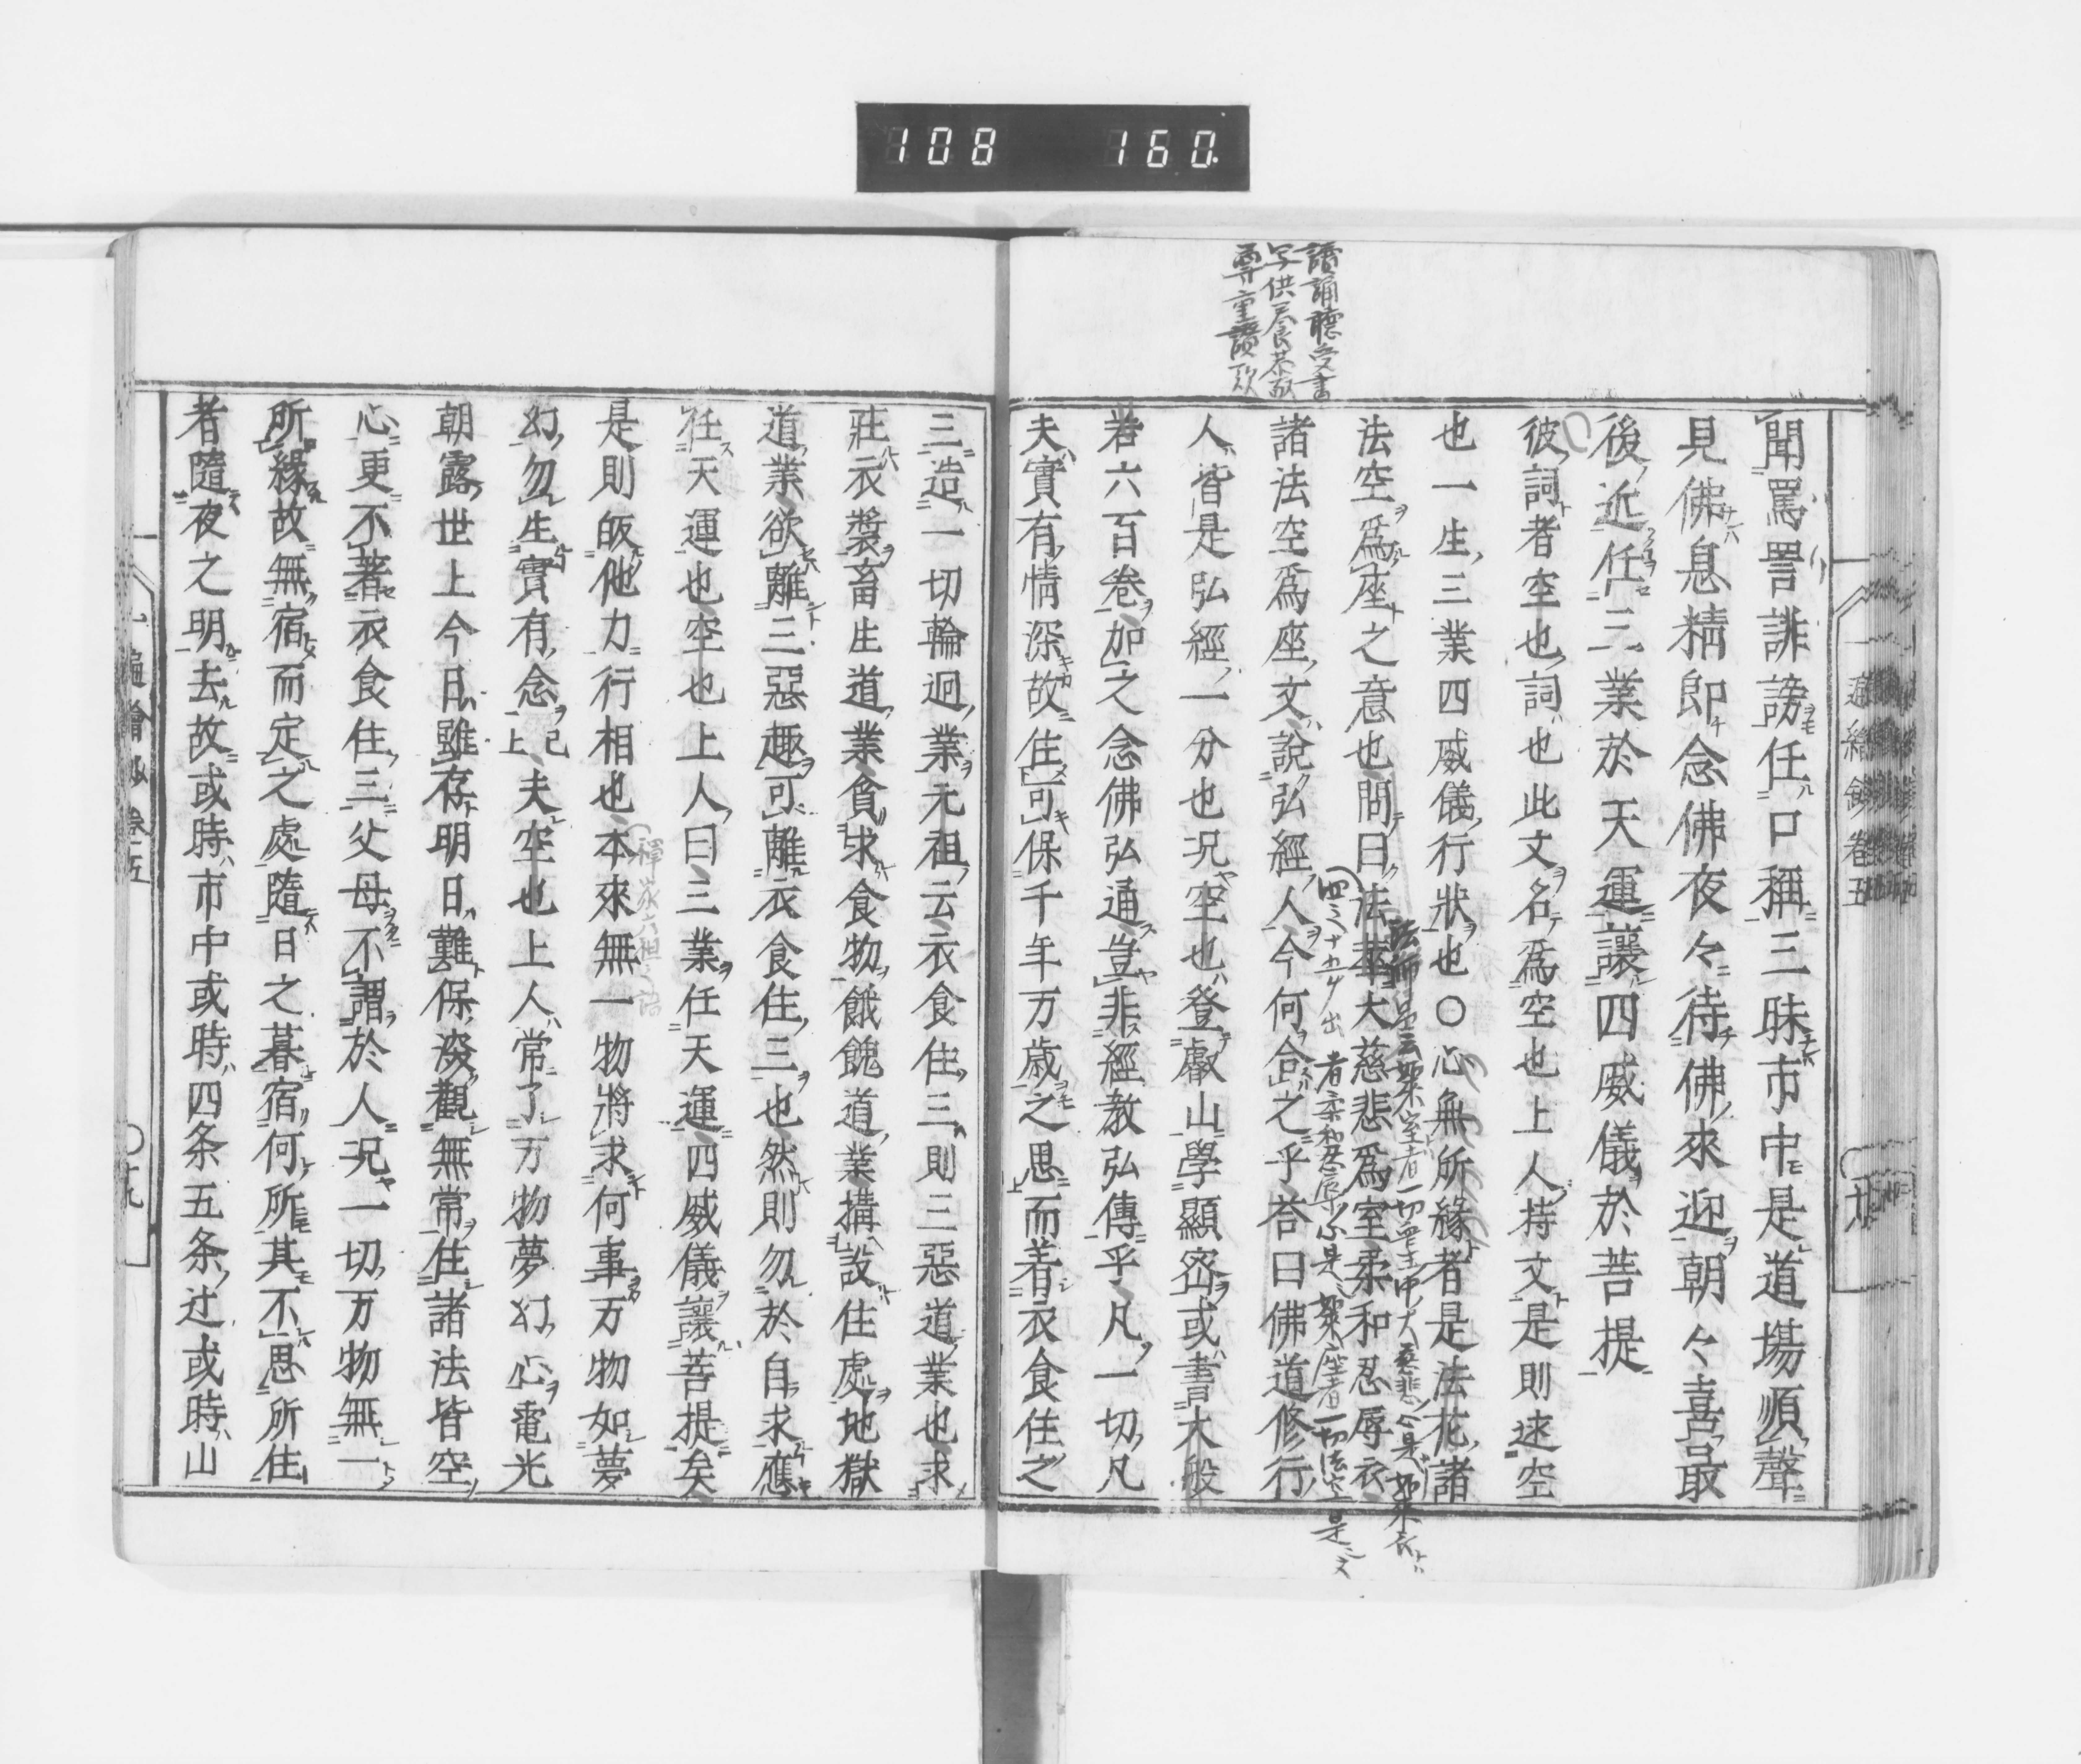 108 160
讀誦聴受書
写供養恭敬
尊重讃歎
聞罵詈誹謗任口稱三昧市中是道塲順聲
見佛息精即念佛夜々待佛來迎朝々喜最
後近任三業於天運讓四威儀於菩提
彼詞者空也詞也此文名爲空也上人持文是則速空
也一生三業四威儀行狀也〇心無所縁者是法花諸
法空爲座之意也問曰法華大慈悲爲室柔和忍辱衣
諸法空爲座文說弘經人今何合之乎荅曰佛道修行
人皆是弘經一分也況空也登叡山學顯密或書大般
若六百卷加之念佛弘通豈非經教弘傳乎凡一切凡
夫實有情深故住可保千年万歲之思而着衣食住之
三造一切輪迴業元祖云衣食住三則三惡道業也求
莊衣裝畜生道業貪求食物餓餽道業搆設住處地獄
道業欲離三惡趣可離衣食住三也然則勿於自求應
任天運也空也上人曰三業任天運四威儀讓菩提矣
是則皈他力行相也本來無一物將求何事万物如夢
幻勿生實有念上已夫空也上人常了万物夢幻心電光
朝露世上今日雖存明日難保深觀無常住諸法皆空
心更不著衣食住三父母不謂於人況一切万物無一
所縁故無宿而定之處隨日之暮宿何所其不思所住
者隨夜之明去故或時市中或時四条五条辻或時山
一遍繪鈔卷五